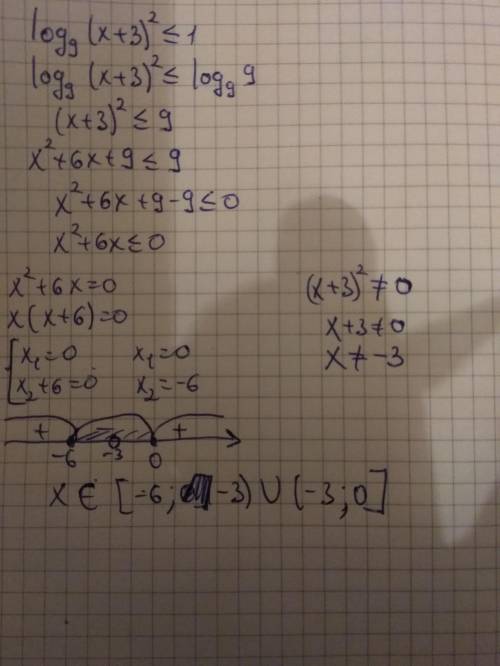 log₉ (x+3)² ≤ 1
log₉ (x+3)² ≤ log₉ 9
(x+3)² ≤ 9
x²+6x+9 ≤ 9
x²+6x+9-9 ≤ 0
x²+6x ≤ 0
x²+6x=0
x(x+6)=0
[x₁=0 x₁=0
x₂+6=0 x₂=-6
(x+3)² ≠ 0
x+3 ≠ 0
x ≠ -3
+ +
-6 -3 0
x ∈ [-6; -3) ∪ (-3; 0]